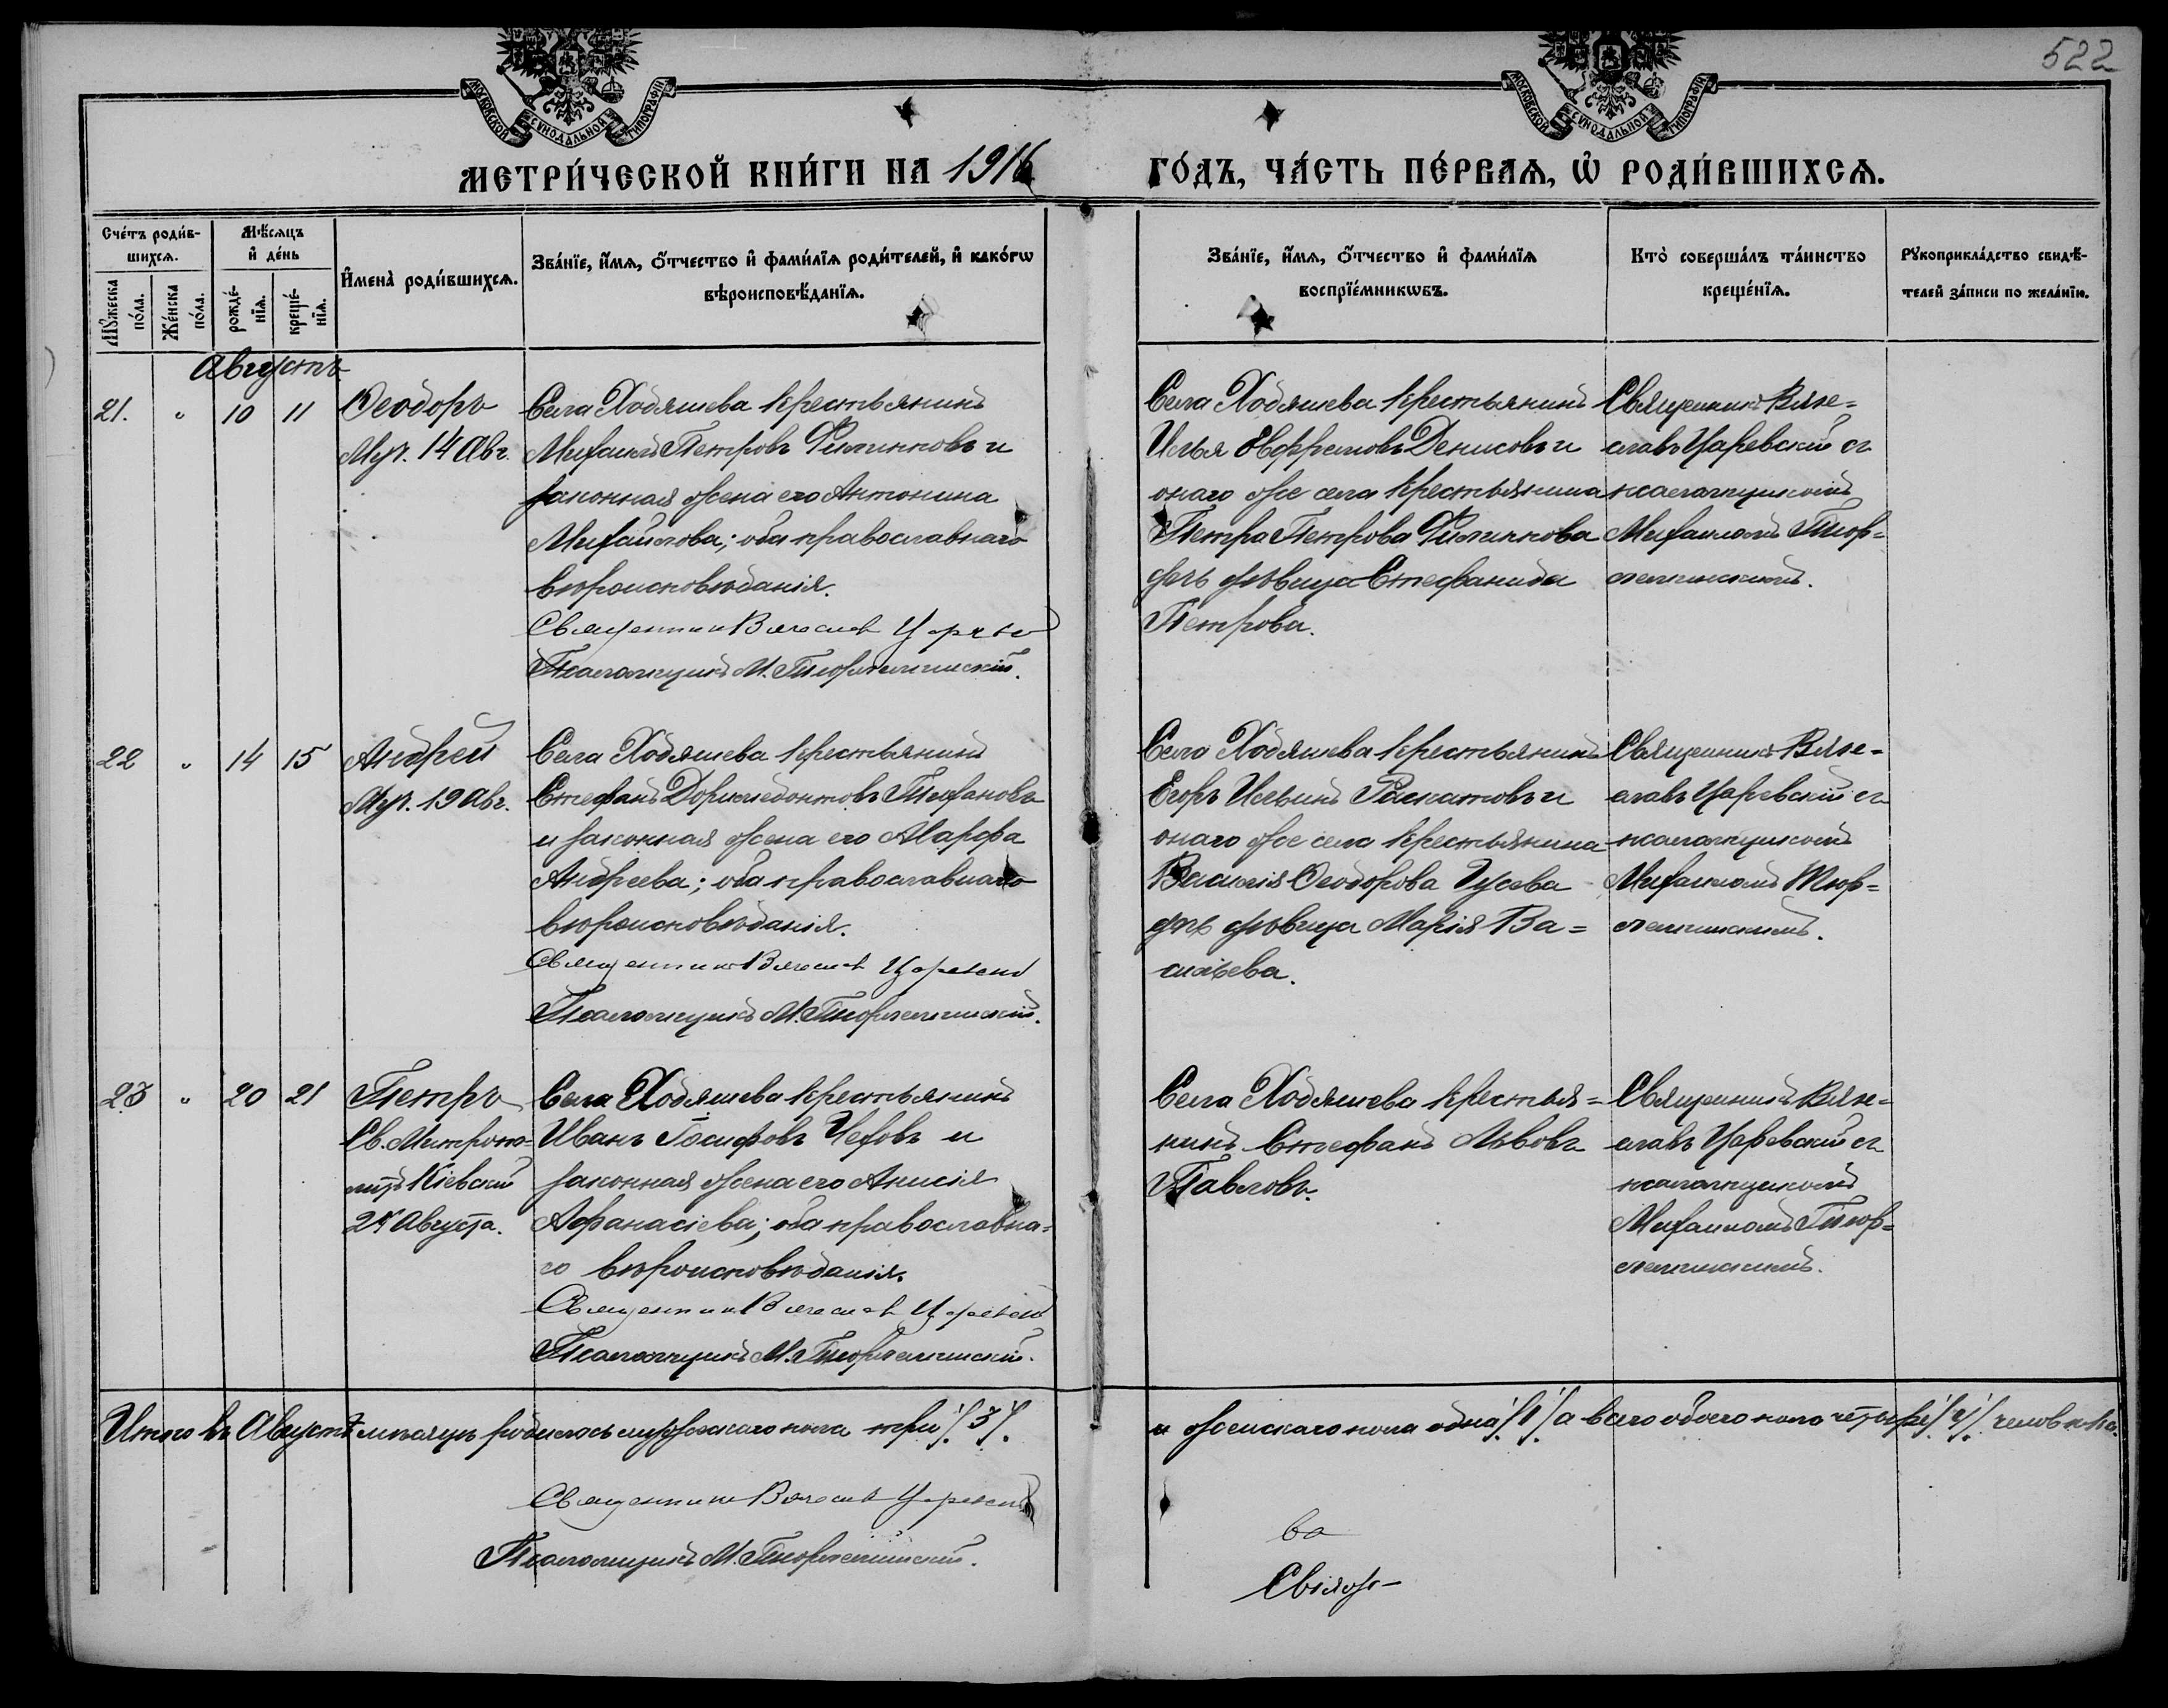 522
МОСКОВСКОЙ СѴНОДАЛЬНОЙ ТИПОГРАФІИ
МОСКОВСКОЙ СѴНОДАЛЬНОЙ ТИПОГРАФІИ
МЕТРИ́ЧЕСКОЙ КНИ́ГИ НА 1916 ГО́ДЪ, ЧА́СТЬ ПЕ́РВАѦ, Ѡ РОДИ́ВШИХСѦ.
Сче́тъ роди́в-
шихсѧ.
Мꙋ́жеска по́ла.
Же́нска по́ла.
Мѣ́сѧцъ
и҆ де́нь
рожде́-
нїѧ.
креще́-
нїѧ.
И҆мена̀ роди́вшихсѧ.
Зва́нїе, и҆́мѧ, ѻ҆́тчество и҆ фами́лїѧ роди́телей, и҆ како́гѡ
вѣроисповѣ́данїѧ.
Зва́нїе, и҆́мѧ, ѻ҆́тчество и҆ фами́лїѧ
воспрїе́мникѡвъ.
Кто̀ соверша́лъ та́инство
креще́нїѧ.
Рꙋкоприкла́дство свидѣ́-
телей за́писи по жела́нїю.
Августъ
21. " 10 11 Ѳеодоръ
Муч. 14 Авг.
Села Ходяшева крестьянинъ
Михаилъ Петровъ Филипповъ и
законная жена его Антонина
Михайлова; оба православнаго
вѣроисповѣданія.
Священникъ Вячеславъ Царевскій
Псаломщикъ М. Тюрлеминскій.
Села Ходяшева крестьянинъ
Илья Евфремовъ Денисовъ и
онаго же села крестьянина
Петра Петрова Филиппова
дочь дѣвица Стефанида
Петрова.
Священникъ Вяче=
славъ Царевскій съ
псаломщикомъ
Михаиломъ Тюр=
леминскимъ.
22 " 14 15 Андрей
Муч. 19 Авг.
Села Ходяшева крестьянинъ
Стефанъ Дормедонтовъ Тимофановъ
и законная жена его Марфа
Андреева; оба православнаго
вѣроисповѣданія.
Священникъ Вячеславъ Царевскій
Псаломщикъ М. Тюрлеминскій.
Села Ходяшева крестьянинъ
Егоръ Ильинъ Раскатовъ и
онаго же села крестьянина
Василія Ѳеодорова Гусева
дочь дѣвица Марія Ва=
сильева.
Священникъ Вяче=
славъ Царевскій съ
псаломщикомъ
Михаиломъ Тюр=
леминскимъ.
23 " 20 21 Петръ
Св. Митропо=
литъ Кіевскій
24 Августа.
Села Ходяшева крестьянинъ
Иванъ Іосифовъ Чеховъ и
законная жена его Анисія
Афанасіева; оба православна=
го вѣроисповѣданія.
Священникъ Вячеславъ Царевскій
Псаломщикъ М. Тюрлеминскій.
Села Ходяшева крестья=
нинъ Стефанъ Львовъ
Павловъ.
Священникъ Вяче=
славъ Царевскій съ
псаломщикомъ
Михаиломъ Тюр=
леминскимъ.
Итого въ Августѣ мѣсяцѣ родилось мужескаго пола три /3/. и женскаго пола одна /1/ а всего обоего пола четыре /4/ человѣка.
Священникъ Вячеславъ Царевскій
Псаломщикъ М. Тюрлеминскій.
ва
Свіяж-